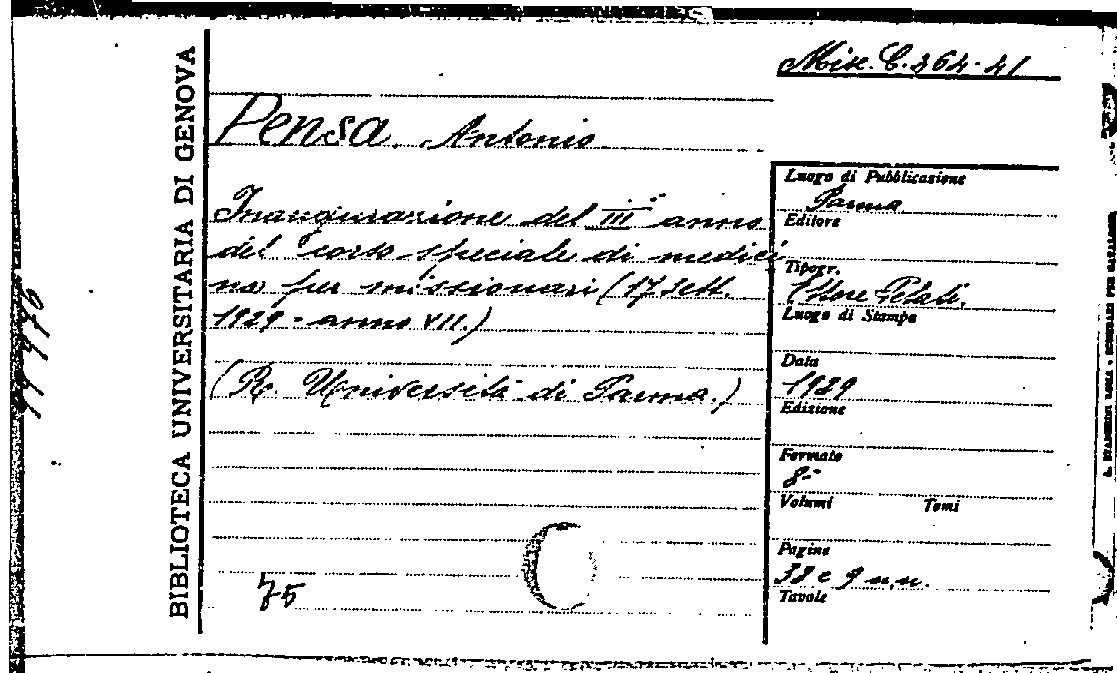 BIBLIOTECA UNIVERSITARIA DI GENOVA
Misc. C. 364-41
Pensa. Antonio
Inaugurazione del III anno
del corso speciale di medici
na per missionari (17 Sett.
1929 - anno VII.)
(R. Università di Parma.)
75
Luogo di Pubblicazione
Parma
Editore
Tipogr.
Luogo di Stampa
Data
1929
Edizione
Formato
8-
Volumi Tomi
Pagine
38 e 9 n.n.
Tavole